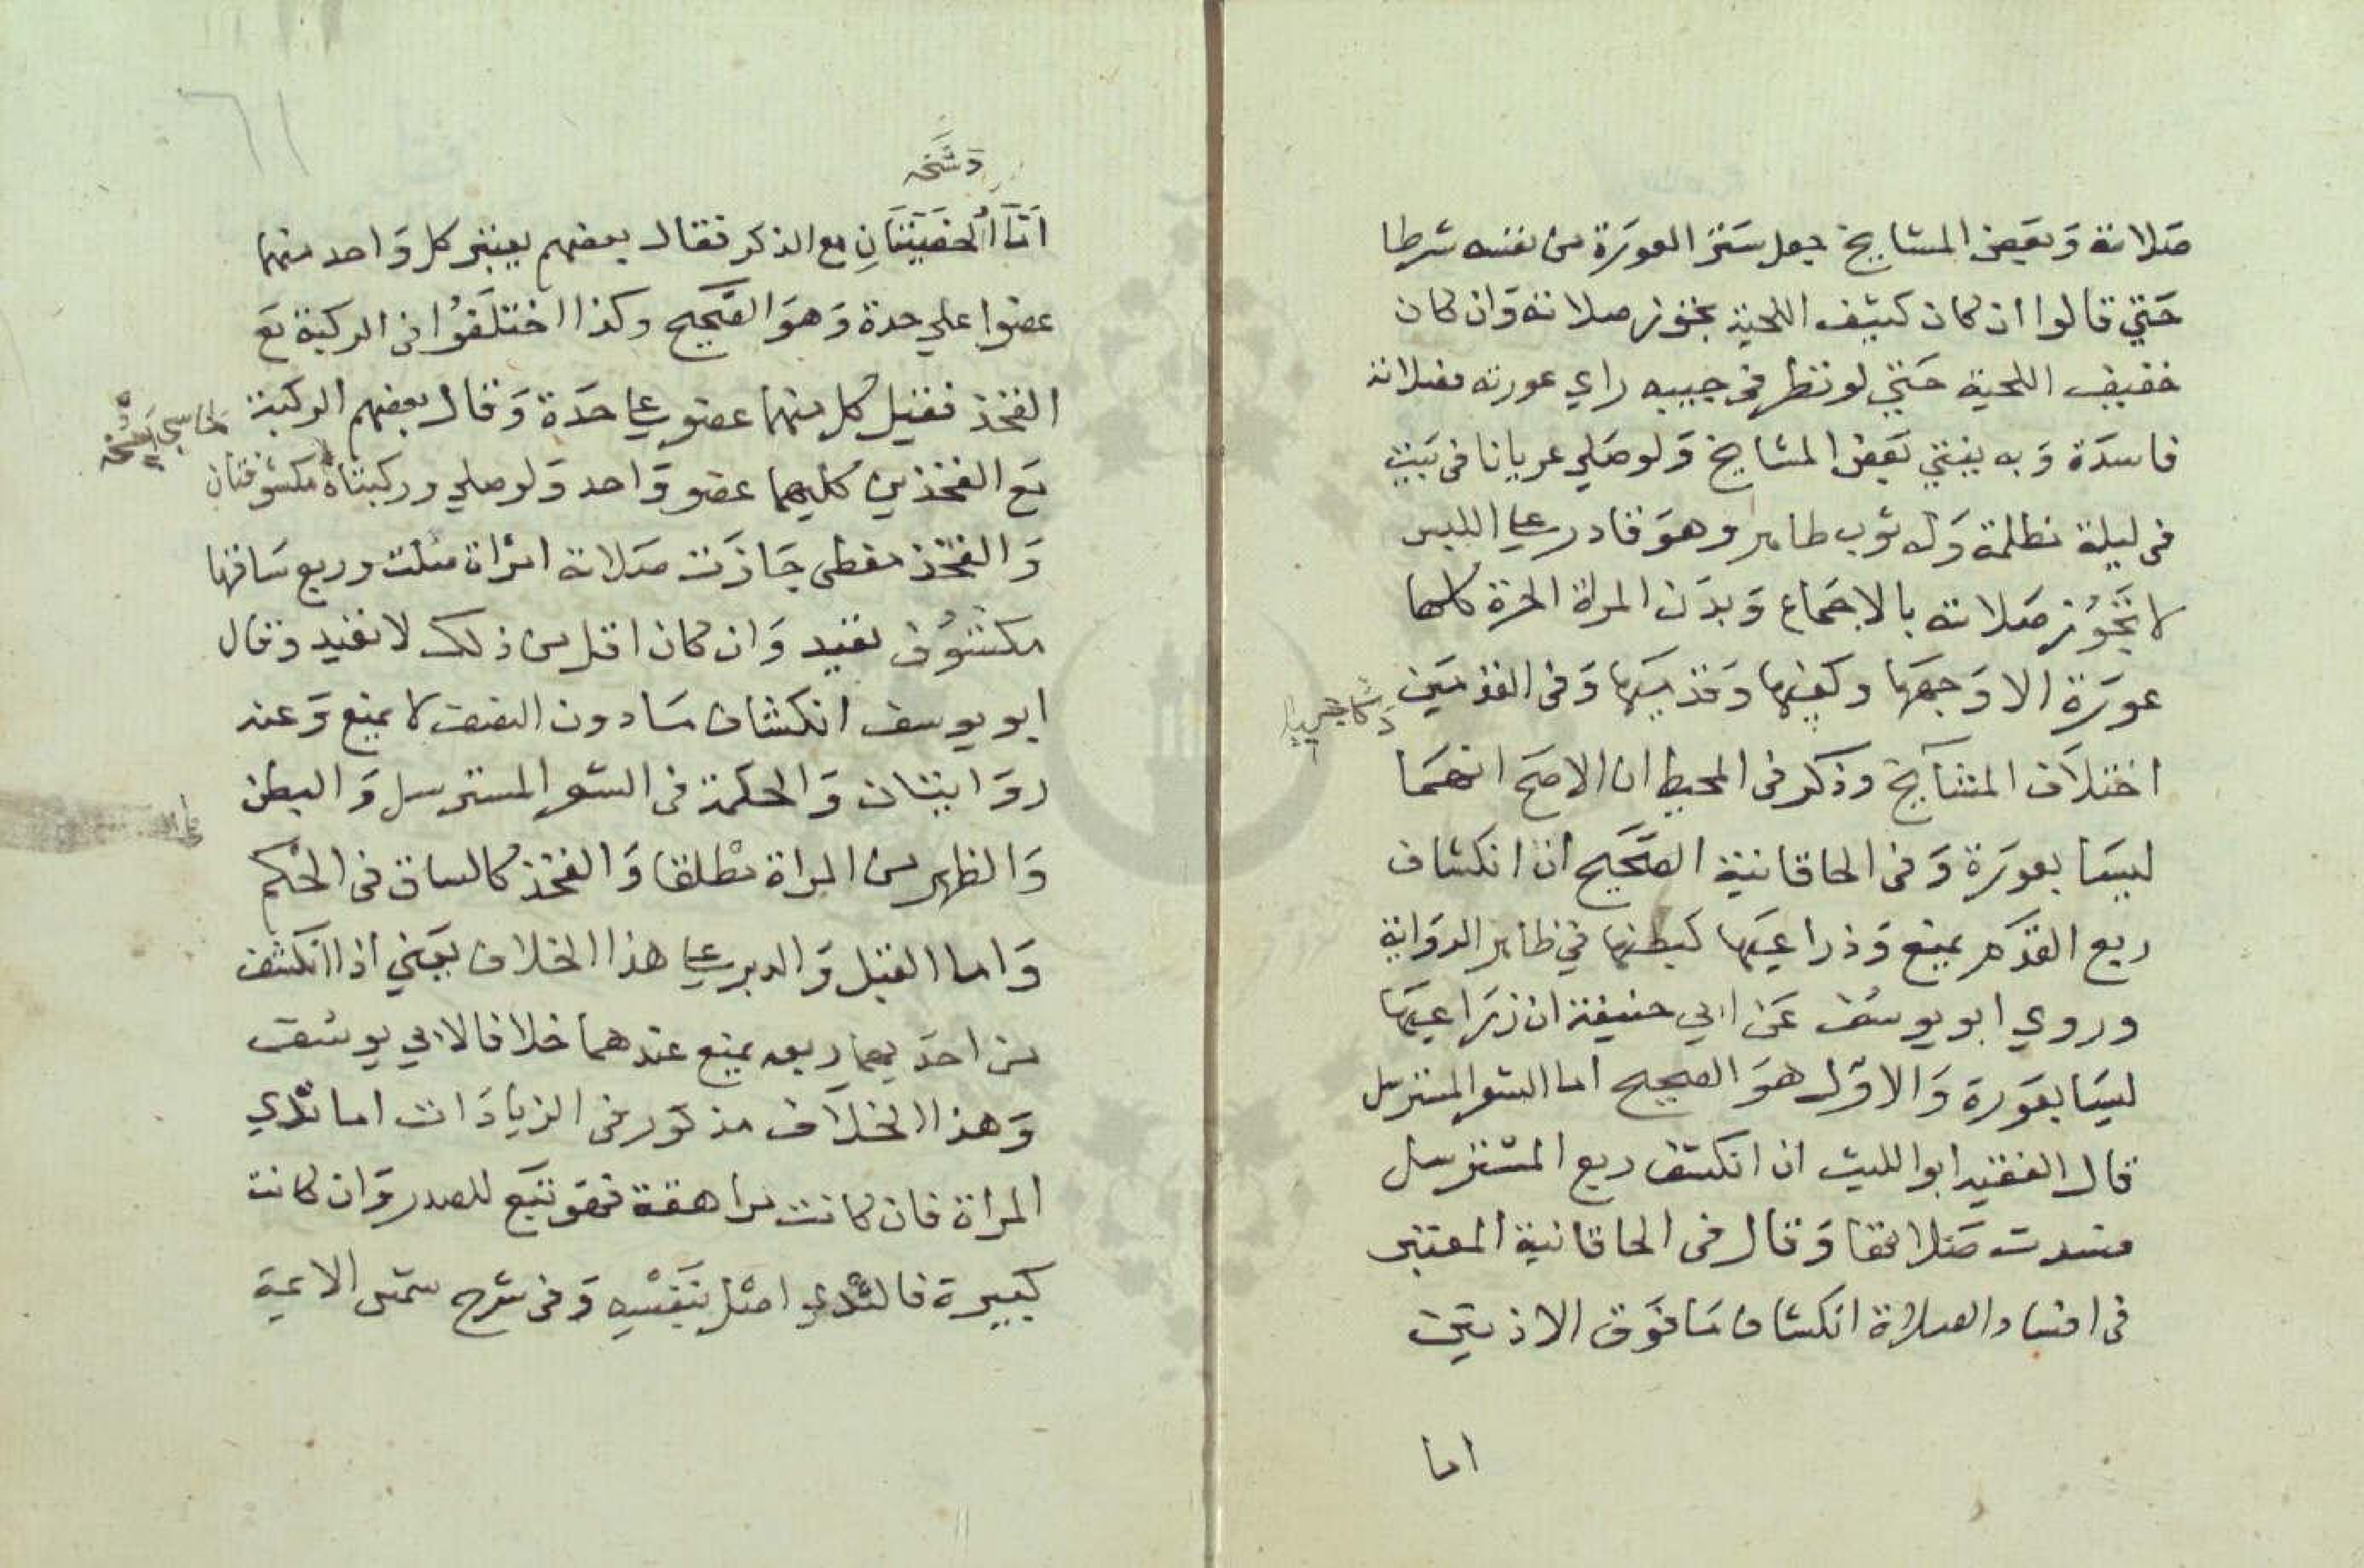 صَلاته وَبعَض المشايخ جعل سَتر العورَة من نفسه شرطا
حَتي قالوا ان كان كثيف اللحية تجوز صلاته وَان كان
خفيف اللحية حَتي لو نظر في جيبه راي عورته فصلاته
فاسدَة وَبه يفتي بَعض المشايخ وَلو صَلي عريانا في بَيت
في ليلة مظلمة وَله ثوب طاهر وهوَ قادر علي اللبس
لا تجَوُز صَلاته بالاجمَاع وَبدَن المراة الحرة كلها
عورَة الا وَجهَهَا وكفيها وَقدَميَها وَفي القدمَين
اختلاَف المشَايخ وذكر في المحيط ان الاصَح انهمَا
ليسَا بعورَة وَفي الخاقانية الصَّحَيح ان انكشاف
ربع القدَم يمنع وَذراعيَها كبطنها في ظاهر الروَاية
وروي ابو يوسُف عَن ابي حنيفة ان ذرَاعيهَا
ليسَا بعَورة وَالاوّل هوَ الصحيح اما الشعر المسترسل
قال الفقيه ابو الليث ان انكشف ربع المسترسل
فسدت صَلاتها وَقال في الخاقانية المعتبر
في افساد الصلاة انكشاف مَا فوَق الاذنين
اما
وَنسخه
اَمّا الخصَيتَانِ مع الذكر فقال بعضهم يعتبر كل وَاحد منهما
عضوا علي حدة وَهوَ الصَّحَيح وكذا اختلَفُوا في الركبة مَع
الفخذ فقيل كل منهما عضو علي حدَة وَقال بعضهم الركبة
مَع الفخذين كليهما عضو وَاحد وَلو صلي وركبتاه مكشوفتان
وَالفخذ مغطي جَازَت صَلاته امرَاة صَلت وربع سَاقها
مكشوُف تعيد وَان كان اقل من ذلك لا تعيد وقال
ابو يوسف انكشاف مَا دون النصف لا يمنع وَعنه
روَايتان وَالحكم في الشعر المسترسل وَالبطن
وَالظهر من المراة مطلقا وَالفخذ كالساق في الحُكم
وَاما القبل وَالدبر علي هذا الخلاف يعَني اذا انكشف
من احدَيهما ربعه يمنع عندهما خلافا لابي يوسُف
وَهذا الخلاَف مذكور في الزيادَات اما ثدي
المراة فان كانت مراهقة فهوَ تبَع للصدر وَان كانت
كبيرة فالثدي اصل بنَفسِه وَفي شرح شمس الائمة